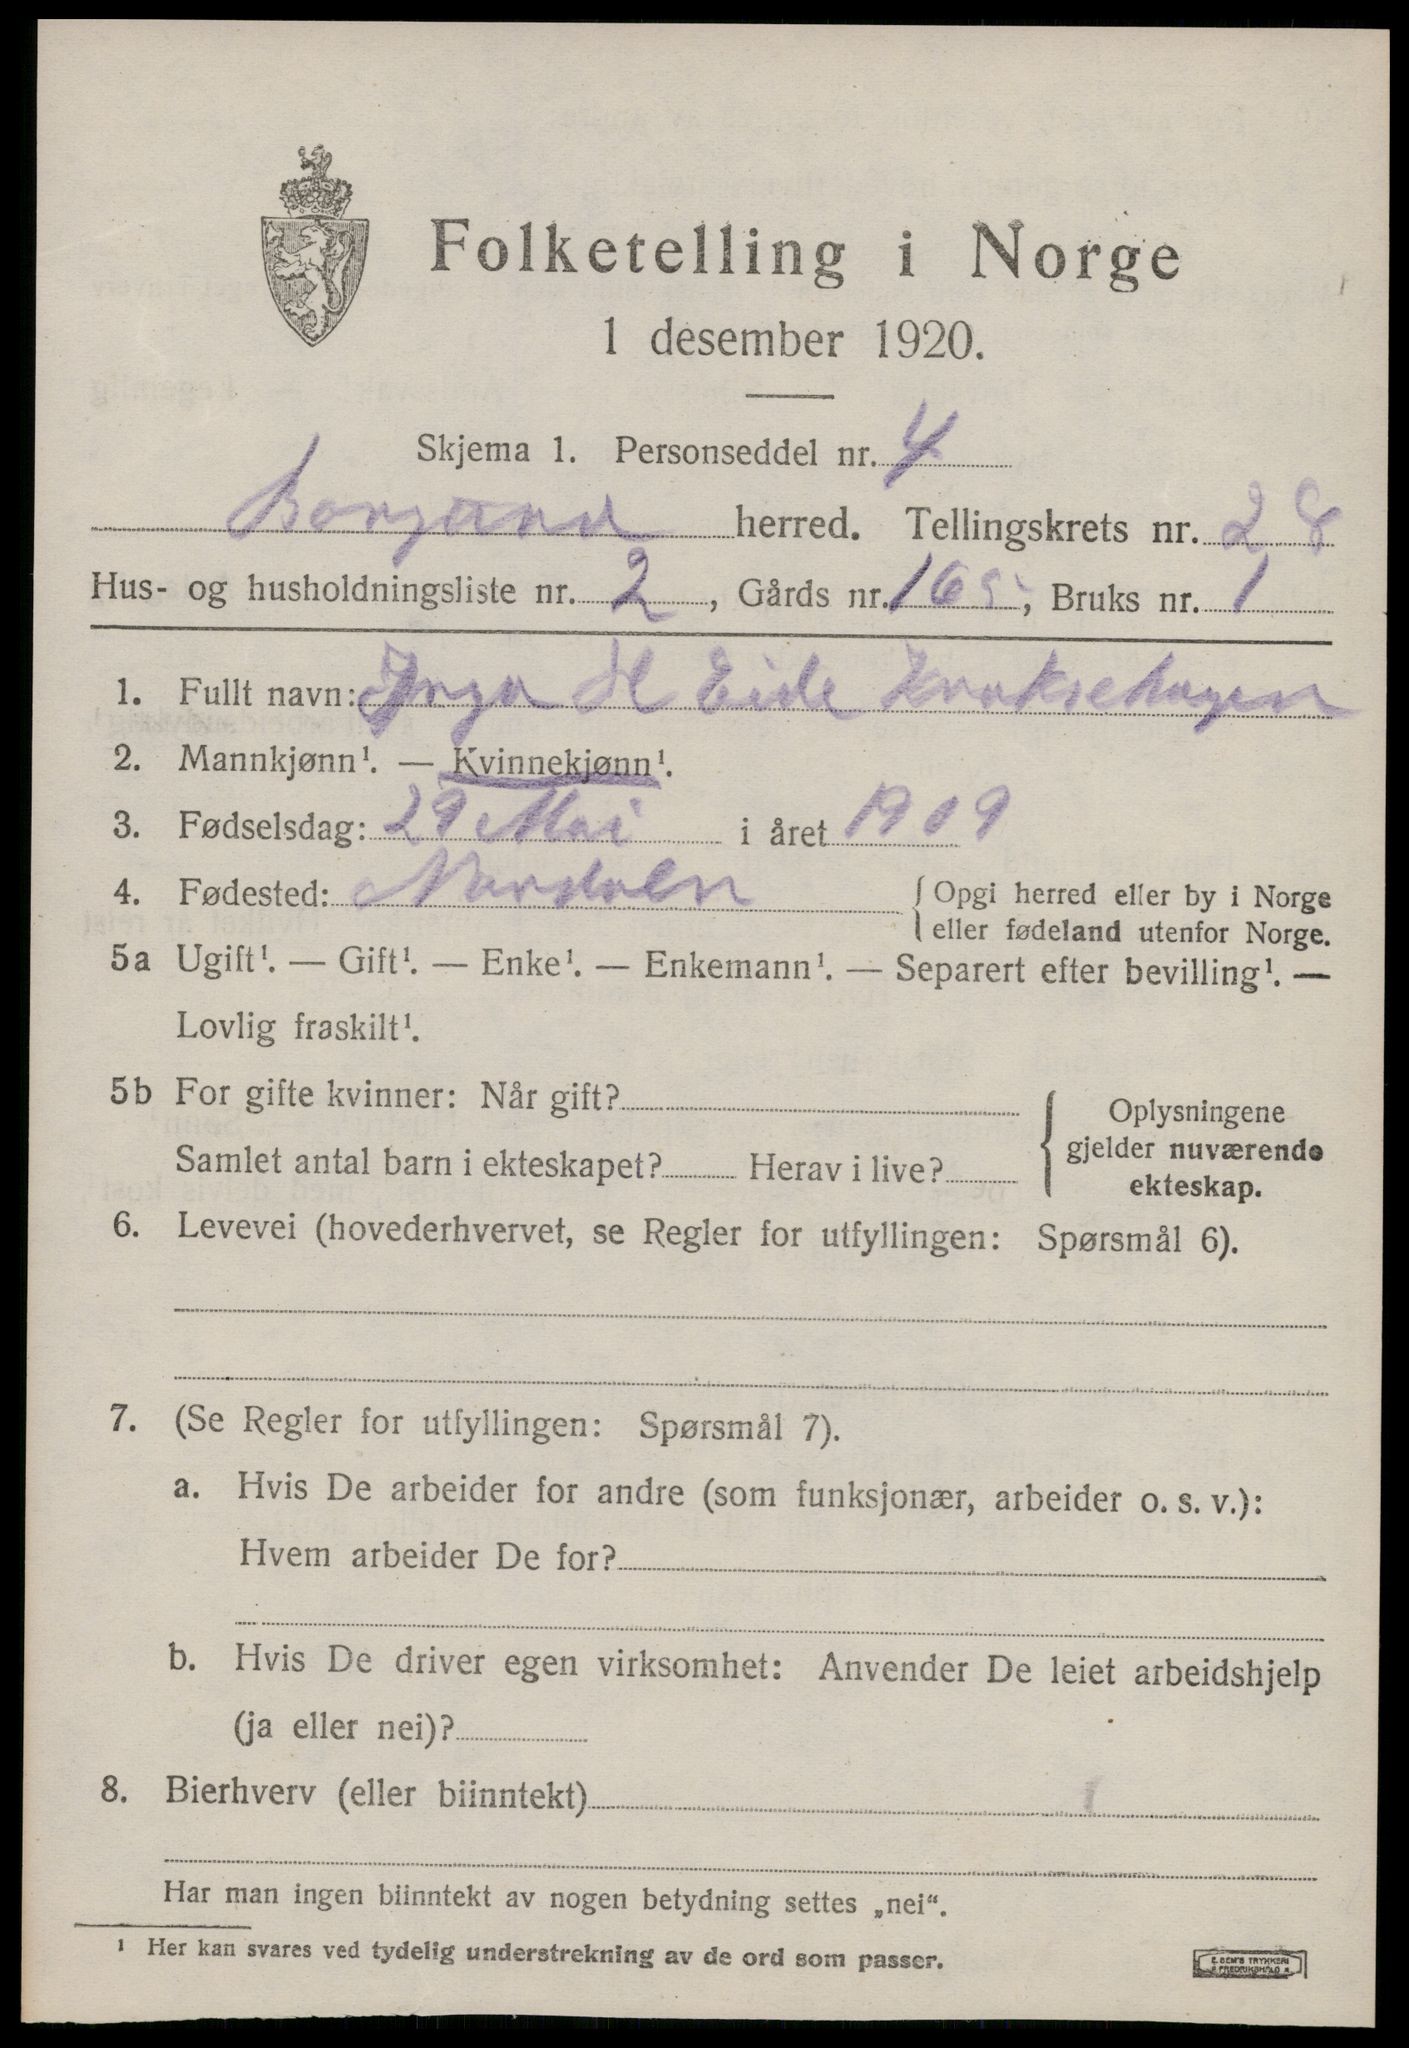 Folketelling i Norge
1 desember 1920.
Skjema 1. Personseddel nr. 4
Borgund herred. Tellingskrets nr. 28
Hus- og husholdningsliste nr. 2, Gårds nr. 165, Bruks nr. 1
1. Fullt navn: Inga H Eide
2. Mannkjønn¹. — Kvinnekjønn¹.
3. Fødselsdag: 29 Mai i året 1909
4. Fødested: { Opgi herred eller by i Norge
{ eller fødeland utenfor Norge.
5a Ugift¹. — Gift¹. — Enke¹. — Enkemann¹. — Separert efter bevilling¹. —
Lovlig fraskilt¹.
5b For gifte kvinner: Når gift? { Oplysningene
Samlet antal barn i ekteskapet? Herav i live? gjelder nuværende
ekteskap.
6. Levevei (hovederhvervet, se Regler for utfyllingen: Spørsmål 6).
7. (Se Regler for utfyllingen: Spørsmål 7).
a. Hvis De arbeider for andre (som funksjonær, arbeider o. s. v.):
Hvem arbeider De for?
b. Hvis De driver egen virksomhet: Anvender De leiet arbeidshjelp
(ja eller nei)?
8. Bierhverv (eller biinntekt)
Har man ingen biinntekt av nogen betydning settes „nei“.
¹ Her kan svares ved tydelig understrekning av de ord som passer.
E. SEM'S TRYKKERI
FREDRIKSHALD